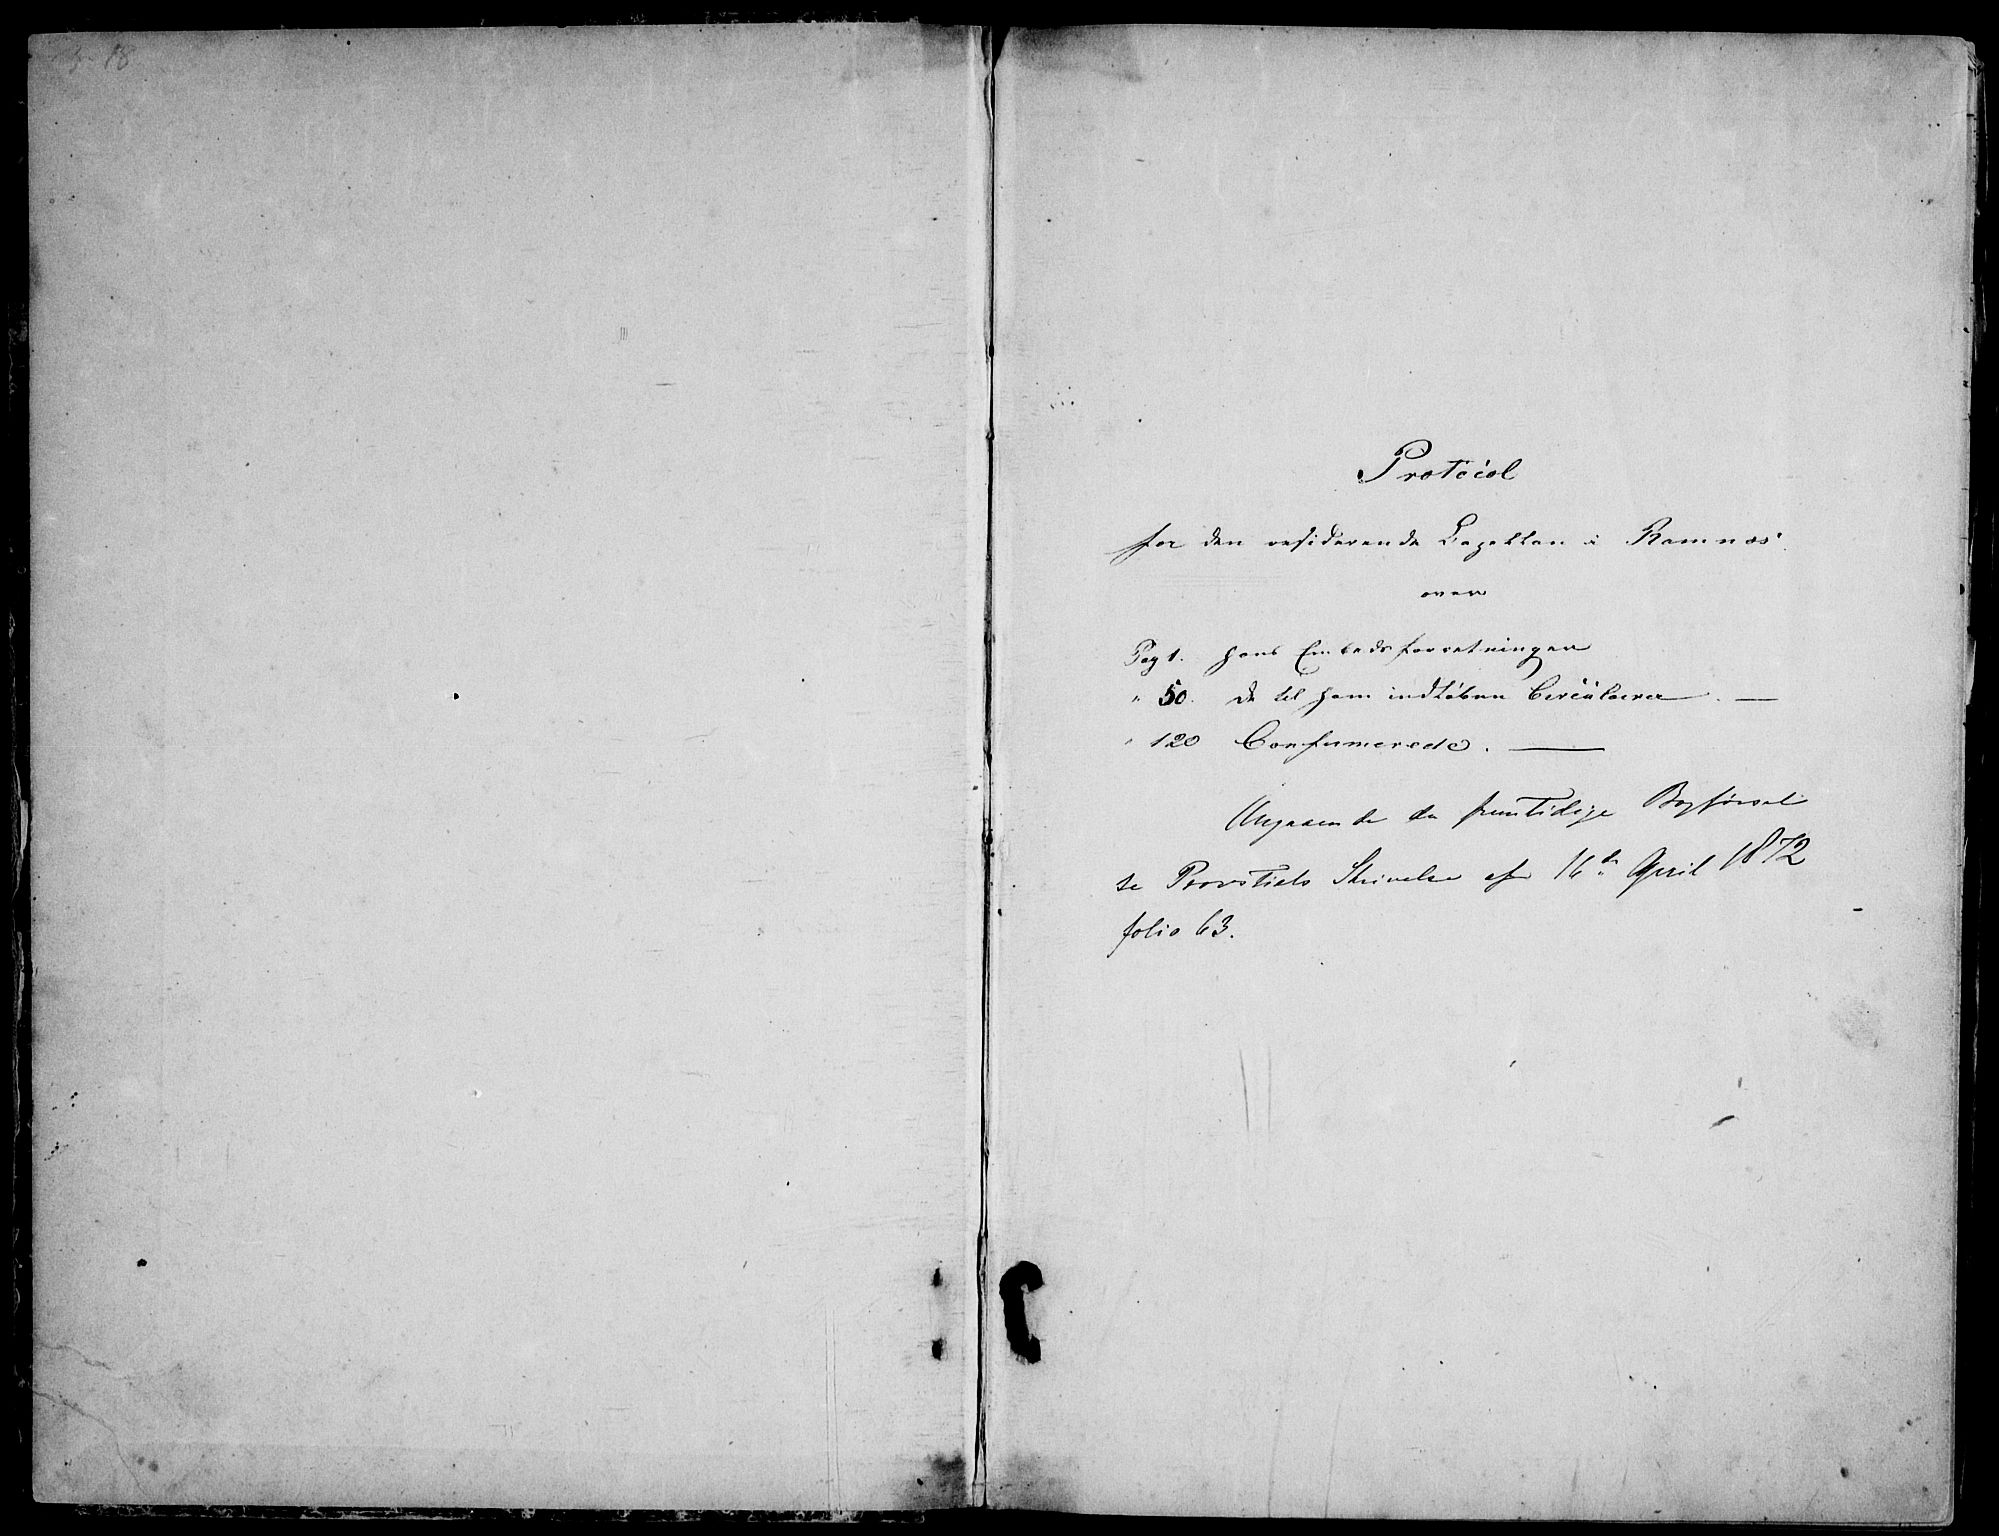 Protocol
for den residerende Capellan i Ramnæs
over
Pag 1. hans Embedsforretninger
" 50. de til ham indløbne Circulærer. —
" 120 Confirmerede. —
Angaaende den fremtidige Bogførsel
se Provstiets Skrivelse af 16de April 1872
folio 63.